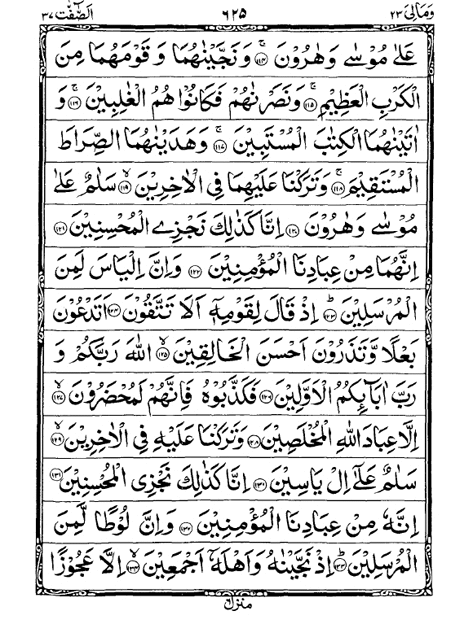 وَمَالِیَ ٢٣ ٦٢۵ اَلصّٰٓفّٰت ٣٧
عَلٰى مُوْسٰى وَهٰرُوْنَ ۝١١٤ وَنَجَّيْنٰهُمَا وَ قَوْمَهُمَا مِنَ
الْكَرْبِ الْعَظِيْمِ ۝١١٥ وَنَصَرْنٰهُمْ فَكَانُوْا هُمُ الْغٰلِبِيْنَ ۝١١٦ وَ
اٰتَيْنٰهُمَا الْكِتٰبَ الْمُسْتَبِيْنَ ۝١١٧ وَهَدَيْنٰهُمَا الصِّرَاطَ
الْمُسْتَقِيْمَ ۝١١٨ وَتَرَكْنَا عَلَيْهِمَا فِى الْاٰخِرِيْنَ ۝١١٩ سَلٰمٌ عَلٰى
مُوْسٰى وَهٰرُوْنَ ۝١٢٠ اِنَّا كَذٰلِكَ نَجْزِى الْمُحْسِنِيْنَ ۝١٢١
اِنَّهُمَا مِنْ عِبَادِنَا الْمُؤْمِنِيْنَ ۝١٢٢ وَاِنَّ اِلْيَاسَ لَمِنَ
الْمُرْسَلِيْنَ ۝١٢٣ اِذْ قَالَ لِقَوْمِهٖٓ اَلَا تَتَّقُوْنَ ۝١٢٤ اَتَدْعُوْنَ
بَعْلًا وَّتَذَرُوْنَ اَحْسَنَ الْخَالِقِيْنَ ۝١٢٥ اللّٰهَ رَبَّكُمْ وَ
رَبَّ اٰبَآئِكُمُ الْاَوَّلِيْنَ ۝١٢٦ فَكَذَّبُوْهُ فَاِنَّهُمْ لَمُحْضَرُوْنَ ۝١٢٧
اِلَّا عِبَادَ اللّٰهِ الْمُخْلَصِيْنَ ۝١٢٨ وَتَرَكْنَا عَلَيْهِ فِى الْاٰخِرِيْنَ ۝١٢٩
سَلٰمٌ عَلٰٓى اِلْ يَاسِيْنَ ۝١٣٠ اِنَّا كَذٰلِكَ نَجْزِى الْمُحْسِنِيْنَ ۝١٣١
اِنَّهٗ مِنْ عِبَادِنَا الْمُؤْمِنِيْنَ ۝١٣٢ وَاِنَّ لُوْطًا لَّمِنَ
الْمُرْسَلِيْنَ ۝١٣٣ اِذْ نَجَّيْنٰهُ وَاَهْلَهٗٓ اَجْمَعِيْنَ ۝١٣٤ اِلَّا عَجُوْزًا
منزل